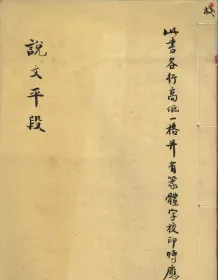 此書各行高低一格并有篆體字校印時應
說文平段